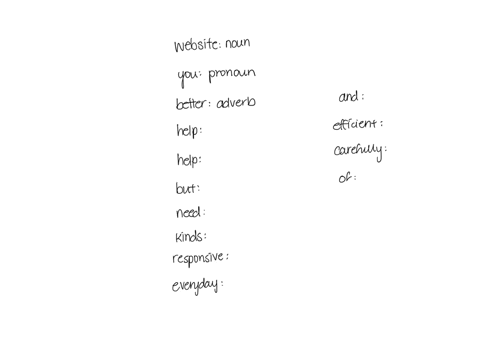 website: noun
you: pronoun
better: adverb
help:
help:
but:
need:
kinds:
responsive:
everyday:
and:
efficient:
carefully:
of: